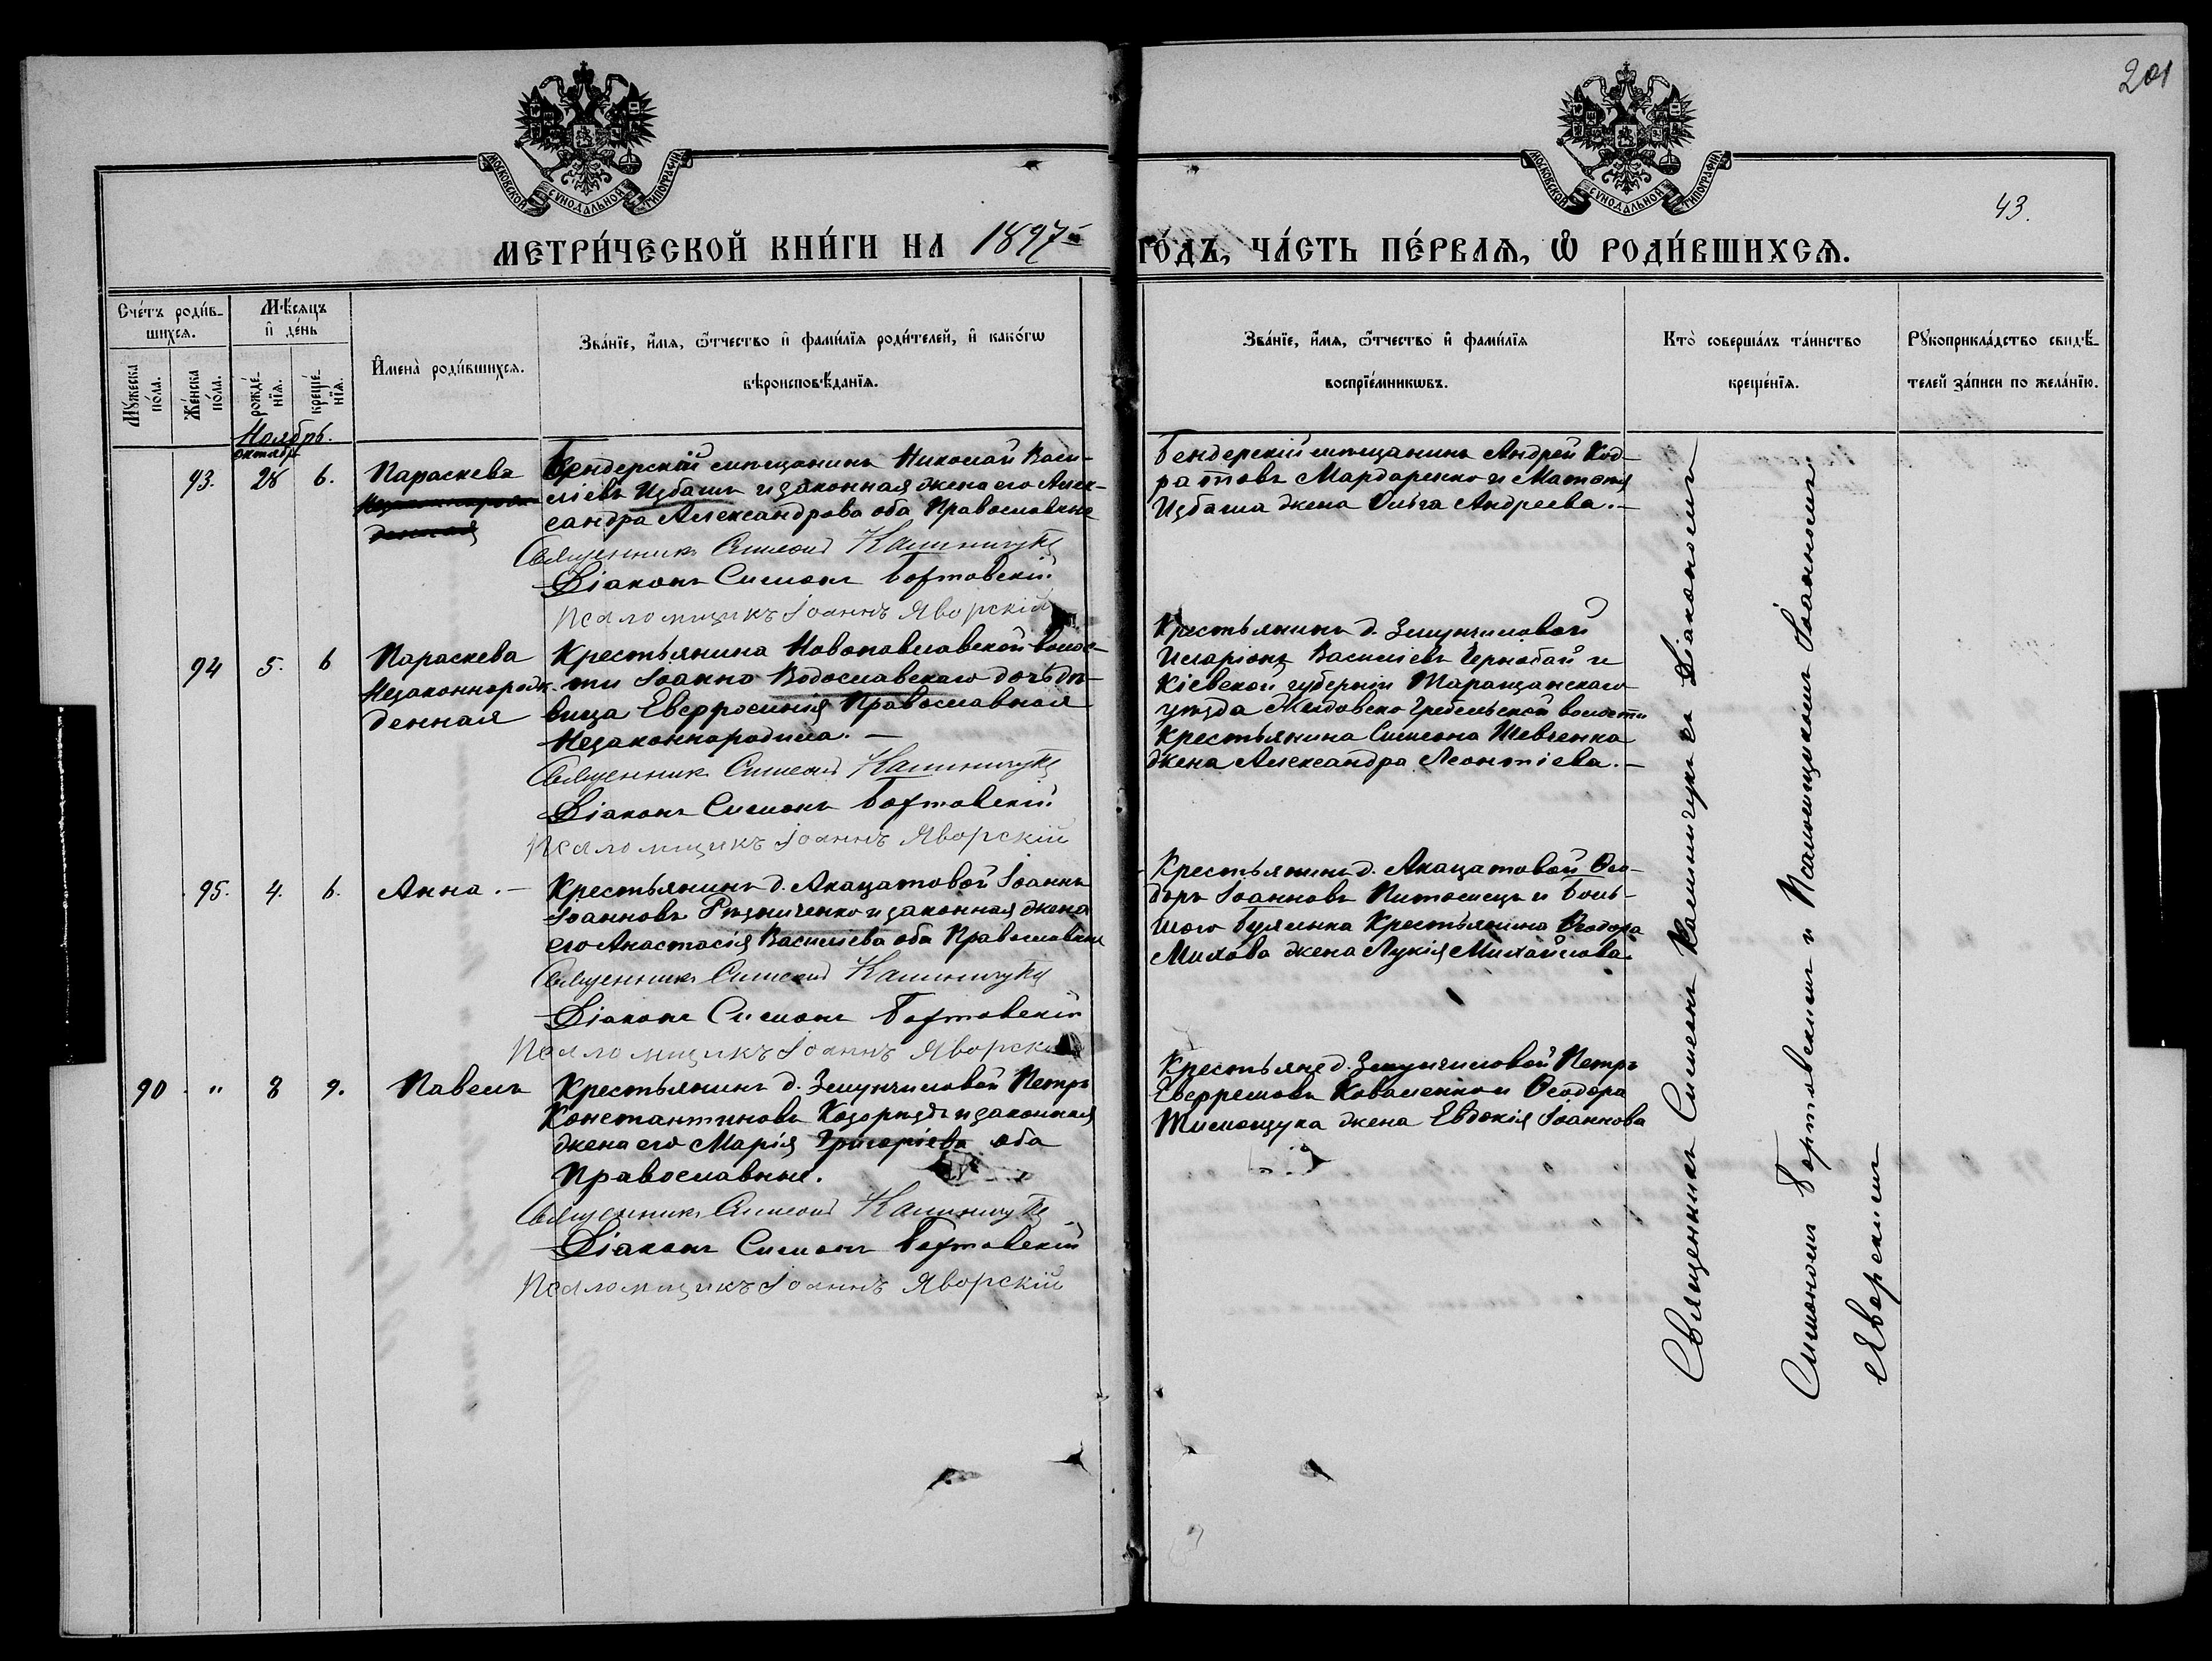 201
МОСКОВСКОЙ СѴНОДАЛЬНОЙ ТИПОГРАФІИ
МОСКОВСКОЙ СѴНОДАЛЬНОЙ ТИПОГРАФІИ
43.
МЕТРИ́ЧЕСКОЙ КНИ́ГИ НА 1897 ГО́ДЪ, ЧА́СТЬ ПЕ́РВАѦ, Ѿ РОДИ́ВШИХСѦ.
Сче́тъ роди́в-
шихсѧ.
Мꙋ́жеска
по́ла.
Же́нска
по́ла.
Мѣ́сѧцъ
и҆ де́нь
рожде́-
нїѧ.
креще́-
нїѧ.
И҆мена̀ роди́вшихсѧ.
Зва́нїе, и҆́мѧ, ѻ҆́тчество и҆ фами́лїѧ роди́телей, и҆ како́гѡ
вѣроисповѣ́данїѧ.
Зва́нїе, и҆́мѧ, ѻ҆́тчество и҆ фами́лїѧ
воспрїе́мникѡвъ.
Кто̀ соверша́лъ та́инство
креще́нїѧ.
Рꙋкоприкла́дство свидѣ́-
телей за́писи по жела́нїю.
Ноябрь.
октября
93. 28 6. Параскева
Бендерскій мѣщанинъ Николай Васи-
ліевъ Избашъ и законная жена его Алек-
сандра Александрова оба Православные
Священникъ Симеонъ Калиничукъ
Діаконъ Симонъ Бортовскій
Псаломщикъ Іоаннъ Яворскій
Бендерскій мѣщанинъ Андрей Код-
ратовъ Мардаренко и Матѳія
Избаша жена Ольга Андреева.—
94 5. 6 Параскева
Незаконнорож-
денная
Крестьянина Новопавловской волос-
ти Іоанна Водославскаго дочь дѣ-
вица Евфросинія Православная
Незаконнородила.—
Священникъ Симеонъ Калиничукъ
Діаконъ Симонъ Бортовскій
Псаломщикъ Іоаннъ Яворскій
Крестьянинъ д.
Иларіонъ Василіевъ Чернобай и
Кіевской губерніи Таращанскаго
уѣзда Жидовско Гребельской волости
Крестьянина Симеона Шевченка
жена Александра Леонтіева.—
95. 4. 6. Анна.—
Крестьянинъ д. Акацатовой Іоаннъ
Іоанновъ Рѣзниченко и законная жена
его Анастасія Василіева оба Православные
Священникъ Симеонъ Калиничукъ
Діаконъ Симонъ Бортовскій
Псаломщикъ Іоаннъ Яворскій
Крестьянинъ д. Акацатовой Ѳео-
доръ Іоанновъ Питомецъ и Боль-
шого Буялыка Крестьянина Ѳеодора
жена Лукія Михайлова.
90 " 8 9. Павелъ
Крестьянинъ д. Петръ
Константиновъ Козоризъ и законная
жена его Марія Григоріева оба
Православные.
Священникъ Симеонъ Калиничукъ
Діаконъ Симонъ Бортовскій
Псаломщикъ Іоаннъ Яворскій
Крестьяне д. Петръ
Коваленко и Ѳеодора
Тимощука жена Евдокія Іоаннова
Священникъ Симеонъ Калиничукъ съ Діакономъ
Симономъ Бортовскимъ и Псаломщикомъ Іоанномъ
Яворскимъ